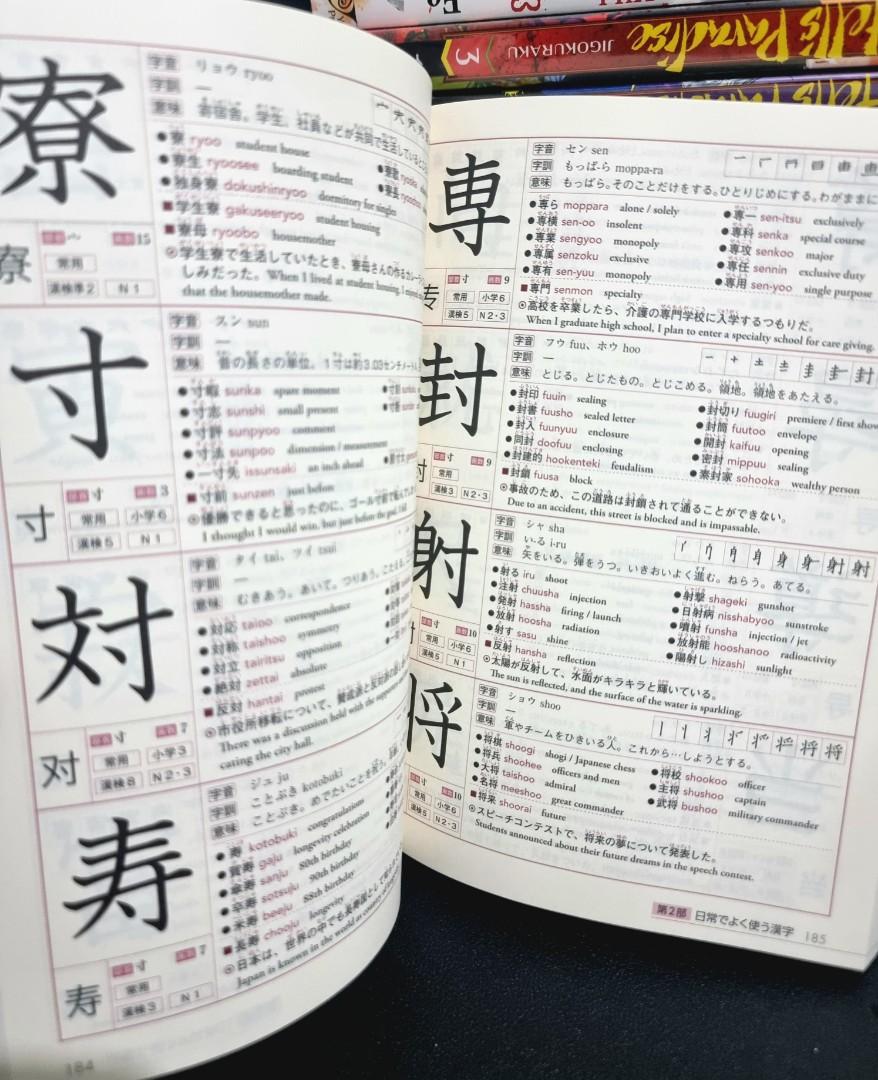 Hell's Paradise
JIGOKURAKU
3
寮
字音 リョウ ryoo
字訓 —
意味 寄宿舎。学生、社員などが共同で生活している
●寮 ryoo student house
●寮生 ryoosee boarding student
●独身寮 dokushinryoo dormitory for singles
■学生寮 gakuseeryoo student housing
■寮母 ryoobo housemother
◎学生寮で生活していたとき、寮母さんの作るカレー
しみだった。 When I lived at student housing, I
that the housemother made.
寮
部首 宀 画数 15
常用
漢検準2 N1
寸
字音 スン sun
字訓 —
意味 昔の長さの単位。1寸は約3.03センチメートル
●寸暇 sunka spare moment
●寸志 sunshi small present
●寸評 sunpyoo comment
●寸法 sunpoo dimension / measurement
●一寸先 issunsaki an inch ahead
■寸前 sunzen just before
◎優勝できると思ったのに、ゴール寸前で
I thought I would win, but just before the goal, I
寸
部首 寸 画数 3
常用 小学6
漢検5 N1
対
字音 タイ tai、ツイ tsui
字訓 —
意味 むきあう。あいて。つりあう。こたえる
●対応 taioo correspondence
●対称 taishoo symmetry
●対立 tairitsu opposition
●絶対 zettai absolute
■反対 hantai protest
◎市役所移転について、賛成派と反対派の
There was a discussion held with the
cating the city hall.
对
部首 寸 画数 7
常用 小学3
漢検8 N2・3
寿
字音 ジュ ju
字訓 ことぶき kotobuki
意味 ことぶき。めでたいことを祝う。
●寿 kotobuki congratulations
●賀寿 gaju longevity celebration
●傘寿 sanju 80th birthday
●卒寿 sotsuju 90th birthday
●米寿 beeju 88th birthday
■長寿 chooju longevity
◎日本は、世界の中でも長寿国として
Japan is known in the world as country of
寿
部首 寸 画数 7
常用
漢検3 N1
184
専
字音 セン sen
字訓 もっぱ-ら moppa-ra
意味 もっぱら。そのことだけをする。ひとりじめにする。わがままに
●専ら moppara alone / solely
●専横 sen-oo insolent
●専業 sengyoo monopoly
●専属 senzoku exclusive
●専有 sen-yuu monopoly
■専門 senmon specialty
●専一 sen-itsu exclusively
●専科 senka special course
●専攻 senkoo major
●専任 sennin exclusive duty
●専用 sen-yoo single purpose
◎高校を卒業したら、介護の専門学校に入学するつもりだ。
When I graduate high school, I plan to enter a specialty school for care giving.
专
部首 寸 画数 9
常用 小学6
漢検5 N2・3
封
字音 フウ fuu、ホウ hoo
字訓 —
意味 とじる。とじたもの。とじこめる。領地。領地をあたえる。
●封印 fuuin sealing
●封書 fuusho sealed letter
●封入 fuunyuu enclosure
●同封 doofuu enclosing
●封建的 hookenteki feudalism
■封鎖 fuusa block
●封切り fuugiri premiere / first show
●封筒 fuutoo envelope
●開封 kaifuu opening
●密封 mippuu sealing
●素封家 sohooka wealthy person
◎事故のため、この道路は封鎖されて通ることができない。
Due to an accident, this street is blocked and is impassable.
封
部首 寸 画数 9
常用
漢検3 N2・3
射
字音 シャ sha
字訓 い-る i-ru
意味 矢をいる。弾をうつ。いきおいよく進む。ねらう。あてる。
●射る iru shoot
●注射 chuusha injection
●発射 hassha firing / launch
●放射 hoosha radiation
●射す sasu shine
■反射 hansha reflection
●射撃 shageki gunshot
●日射病 nisshabyoo sunstroke
●噴射 funsha injection / jet
●放射能 hooshanoo radioactivity
●陽射し hizashi sunlight
◎太陽が反射して、水面がキラキラと輝いている。
The sun is reflected, and the surface of the water is sparkling.
画数 10
常用 小学6
漢検5 N1
将
字音 ショウ shoo
字訓 —
意味 軍やチームをひきいる人。これから…しようとする。
●将棋 shoogi shogi / Japanese chess
●将兵 shoohee officers and men
●大将 taishoo admiral
●名将 meeshoo great commander
■将来 shoorai future
●将校 shookoo officer
●主将 shushoo captain
●武将 bushoo military commander
◎スピーチコンテストで、将来の夢について発表した。
Students announced about their future dreams in the speech contest.
部首 寸 画数 10
常用 小学6
漢検5 N2・3
第2部 日常でよく使う漢字 185